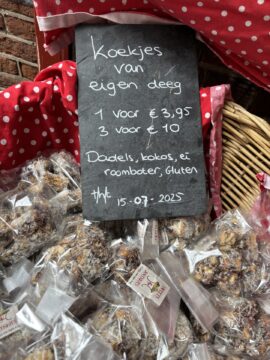 Koekjes
van
eigen deeg
1 voor € 3,95
3 voor € 10
Dadels, kokos, ei
roomboter, Gluten
tht 15-07-2025